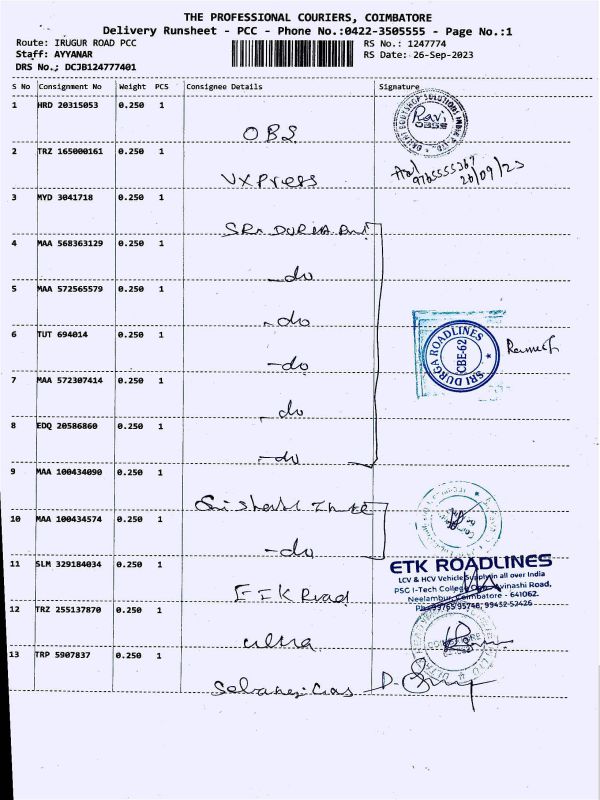 THE PROFESSIONAL COURIERS, COIMBATORE
Delivery Runsheet - PCC - Phone No.:0422-3505555 - Page No.:1
Route: IRUGUR ROAD PCC RS No.: 1247774
Staff: AYYANAR RS Date: 26-Sep-2023
DRS No.; DCJB124777401
S No Consignment No Weight PCS Consignee Details Signature
1 HRD 20315053 0.250 1
OBS
Ravi
OBS
2 TRZ 165000161 0.250 1
VXPress
9765555367
26/09/23
3 MYD 3041718 0.250 1
SRi DURGA
4 MAA 568363129 0.250 1
-do
5 MAA 572565579 0.250 1
-do
6 TUT 694014 0.250 1
-do
SRI DURGA ROADLINES
CBE-62
7 MAA 572307414 0.250 1
-do
8 EDQ 20586860 0.250 1
-do
9 MAA 100434090 0.250 1
Sri
10 MAA 100434574 0.250 1
-do
11 SLM 329184034 0.250 1
ETK Road
ETK ROADLINES
LCV & HCV Vehicle Supply in all over India
PSG I-Tech College Opp. Avinashi Road,
Neelambur, Coimbatore - 641062.
Ph: 99765 95748, 99432 52426
12 TRZ 255137870 0.250 1
ultra
13 TRP 5907837 0.250 1